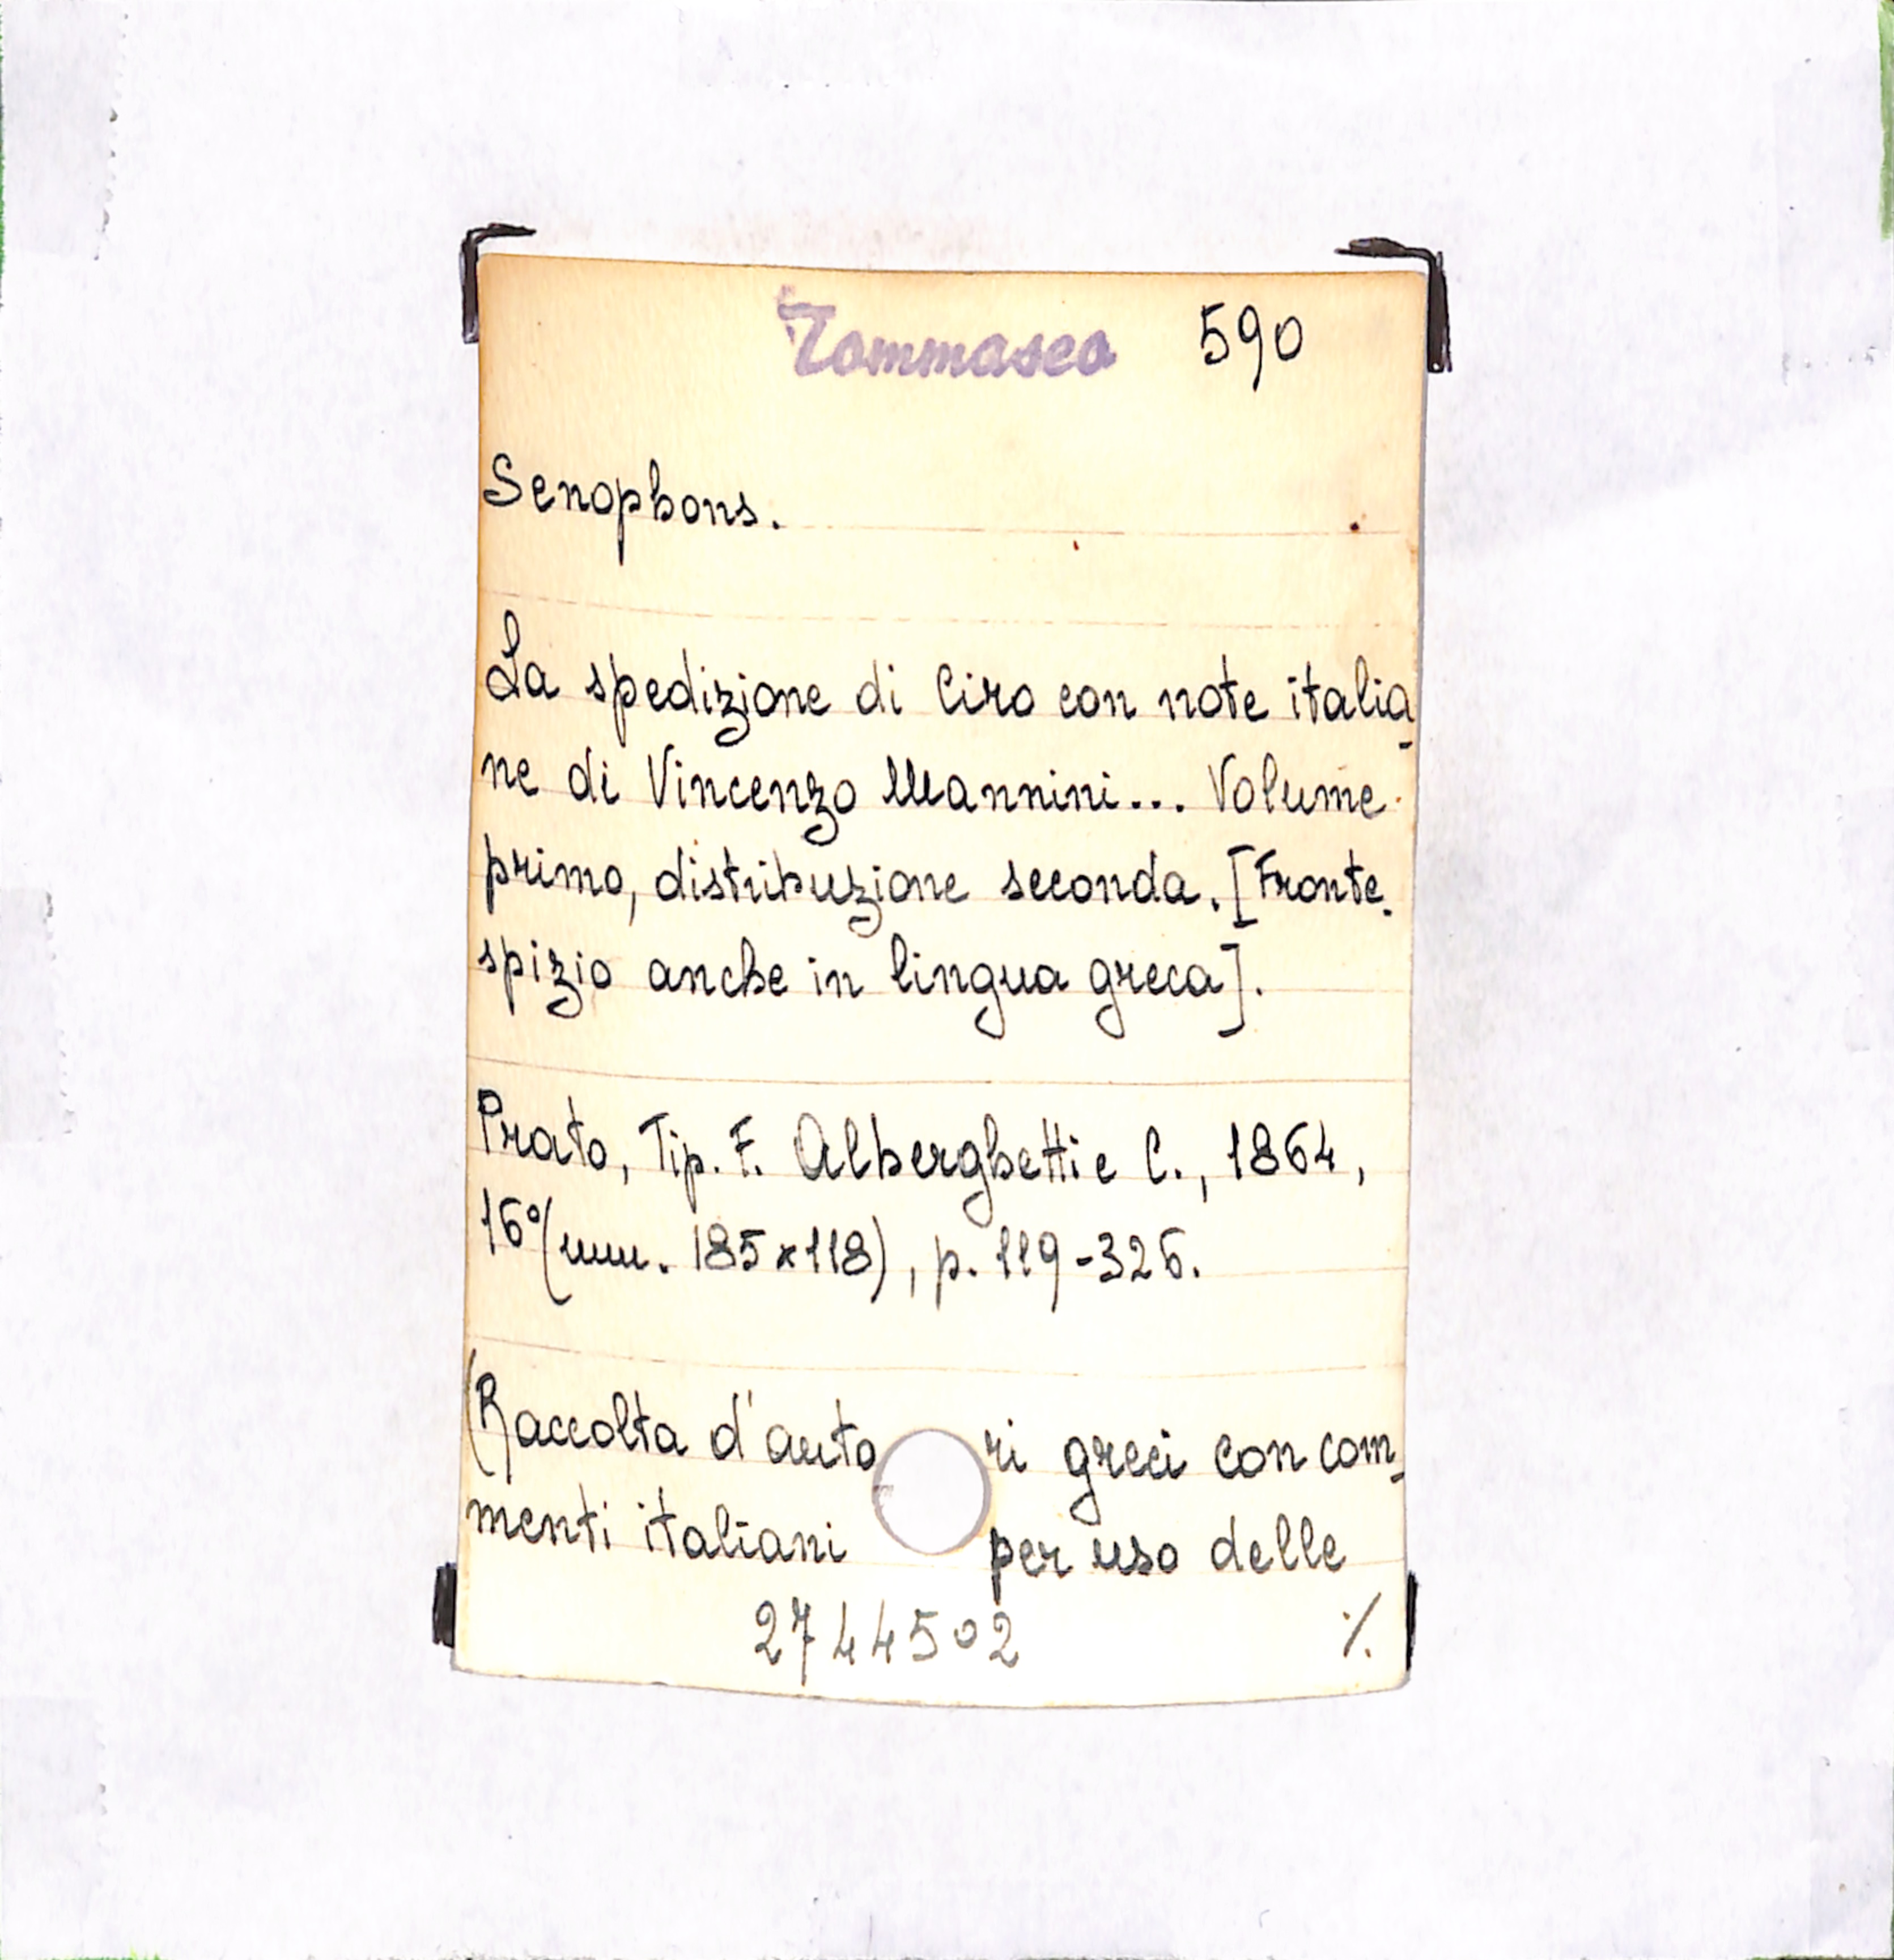 Tommaseo 590
Senophons.
La spedizione di Ciro con note italia-
ne di Vincenzo Mannini... Volume
primo, distribuzione seconda. [Fronte-
spizio anche in lingua greca].
Prato, Tip. F. Alberghetti e C., 1864,
16°(mm. 185x118), p. 119-326.
(Raccolta d'autori greci con com-
menti italiani per uso delle
2744502 ./.